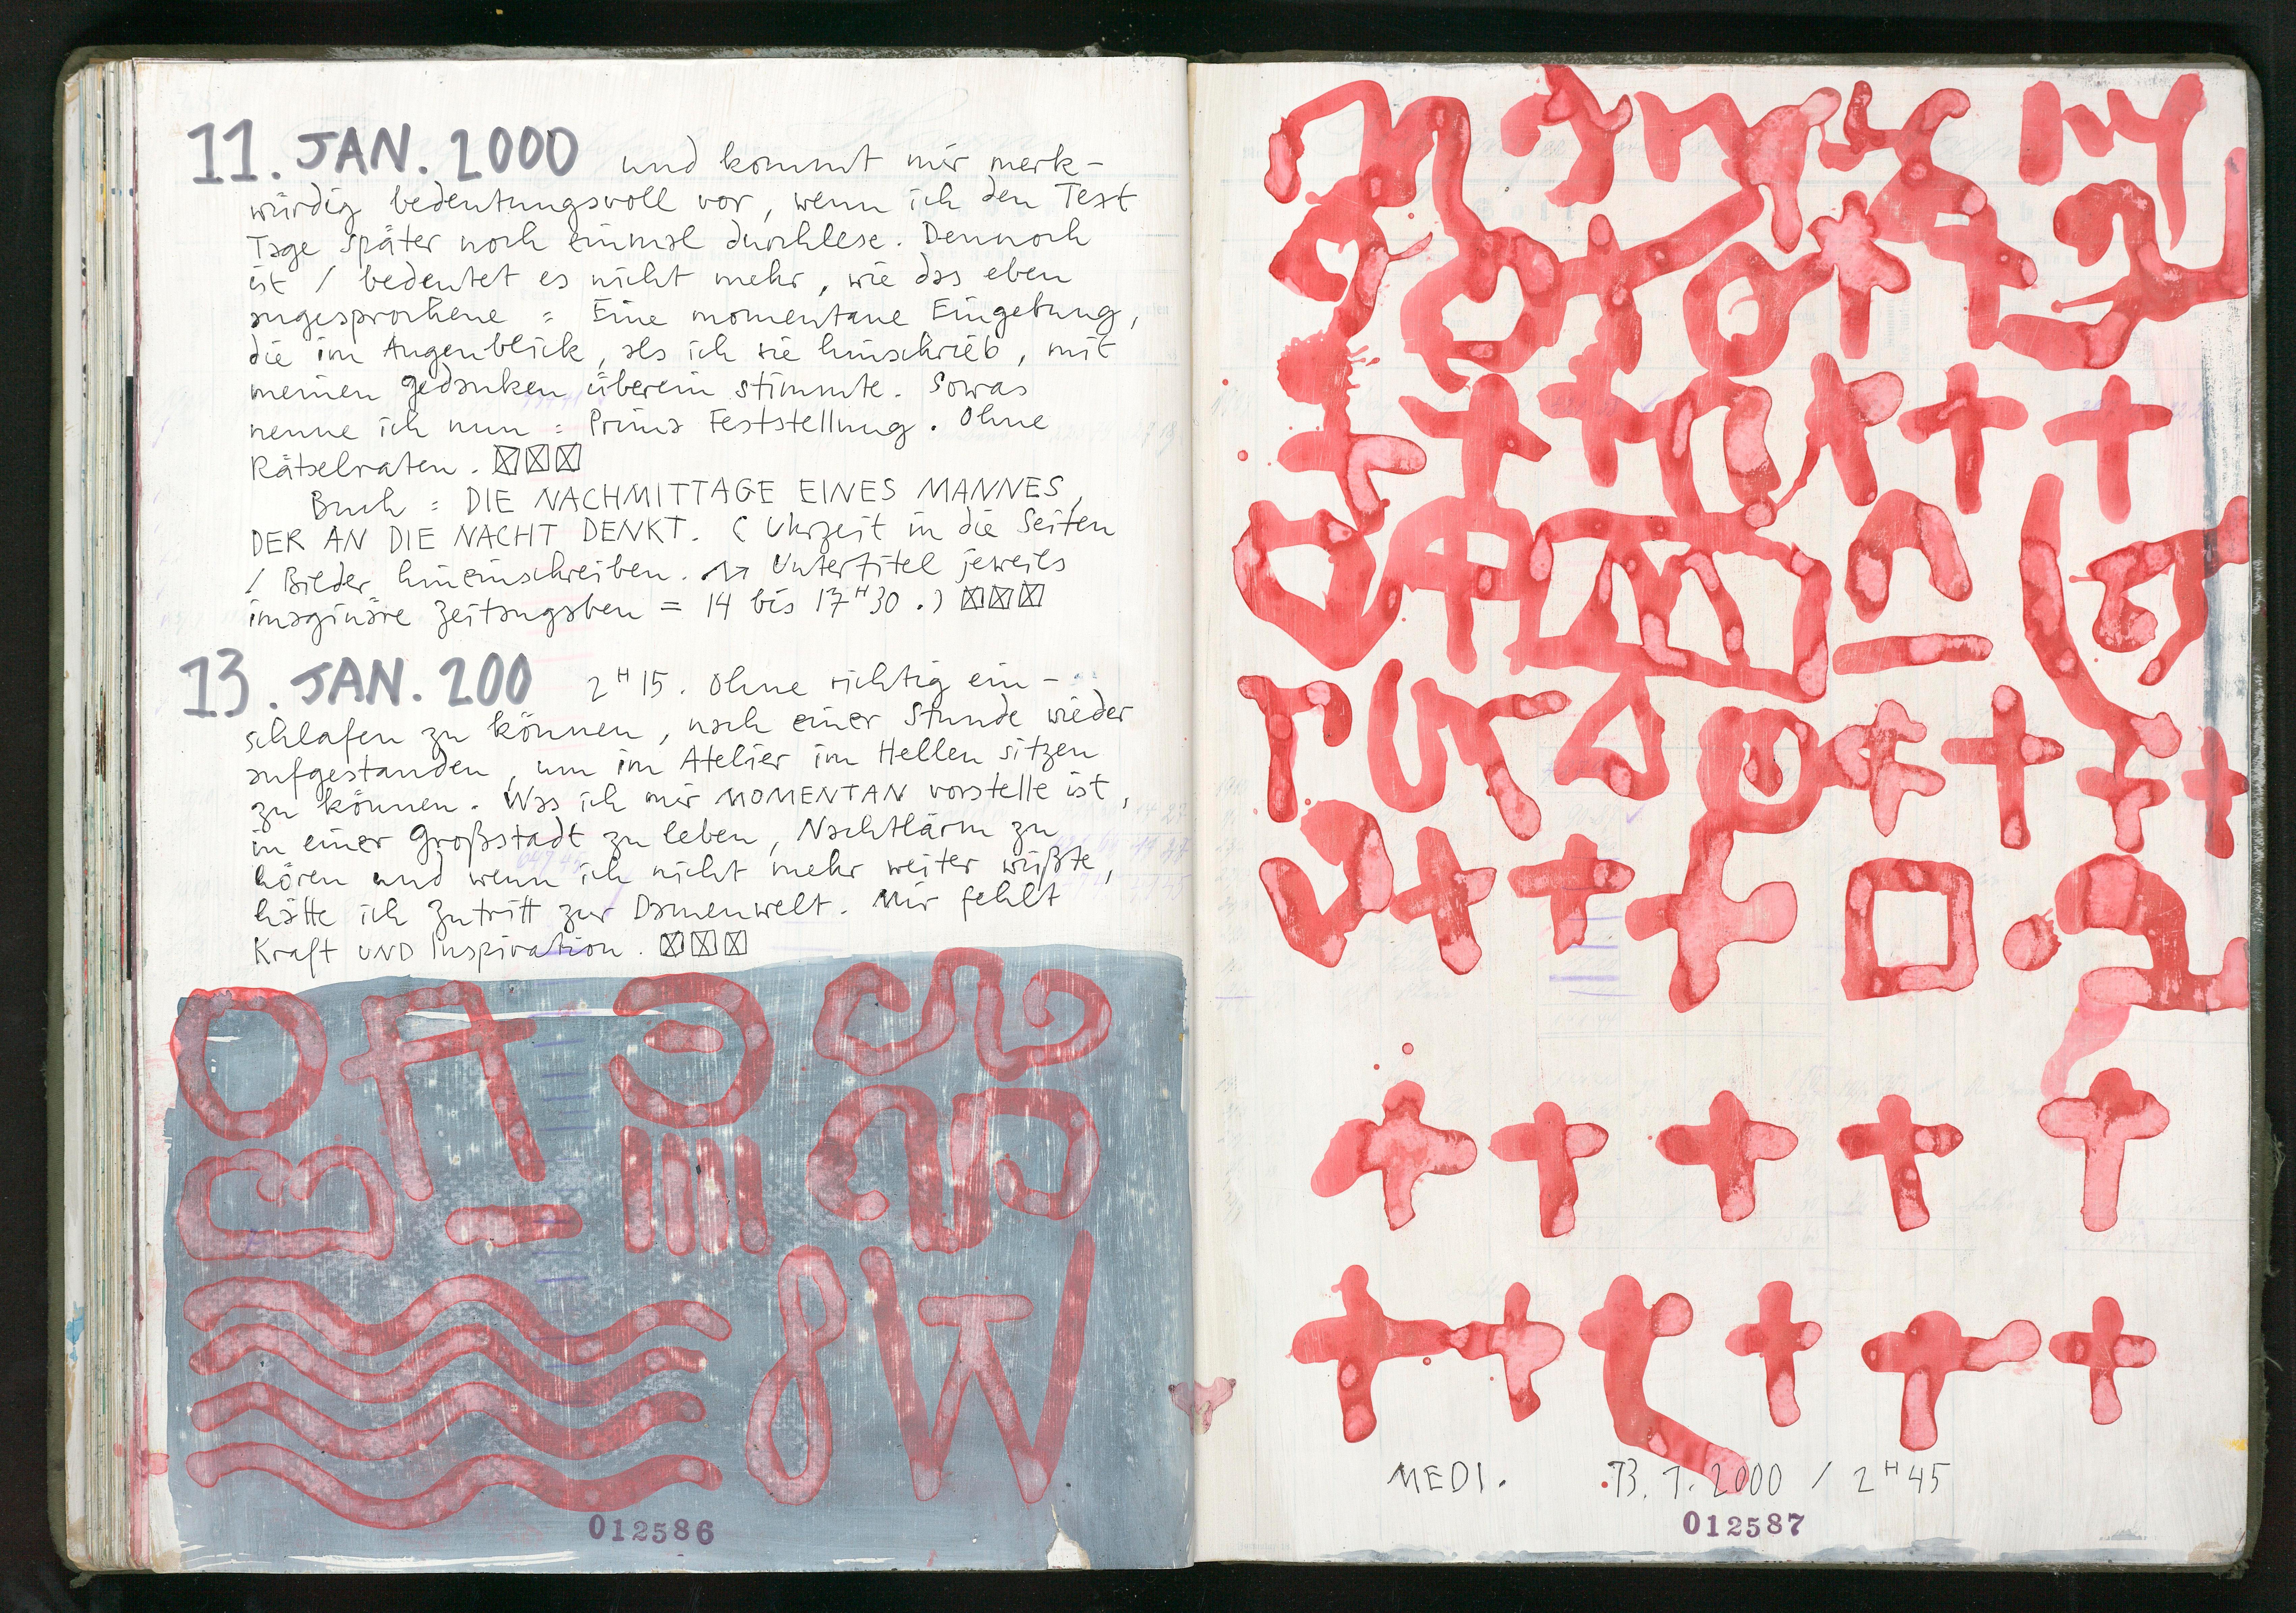 11. JAN. 2000 und kommt mir merk-
würdig bedeutungsvoll vor, wenn ich den Text
Tage später noch einmal durchlese. Dennoch
ist / bedeutet es nicht mehr, wie das eben
angesprochene = Eine momentane Eingebung,
die im Augenblick, als ich sie hinschrieb, mit
meinen Gedanken überein stimmte. Sowas
nenne ich nun = Prima Feststellung. Ohne
Rätselraten.
Buch = DIE NACHMITTAGE EINES MANNES,
DER AN DIE NACHT DENKT. (Uhrzeit in die Seiten
/ Bilder hineinschreiben. Untertitel jeweils
imaginäre Zeitangaben = 14 bis 17H30.)
13. JAN. 200 2H15. Ohne richtig ein-
schlafen zu können, nach einer Stunde wieder
aufgestanden, um im Atelier im Hellen sitzen
zu können. Was ich mir MOMENTAN vorstelle ist,
in einer Großstadt zu leben, Nachtlärm zu
hören und wenn ich nicht mehr weiter wüßte,
hätte ich Zutritt zur Damenwelt. Mir fehlt
Kraft UND Inspiration.
012586
MEDI. 13.1.2000 / 2H45
012587